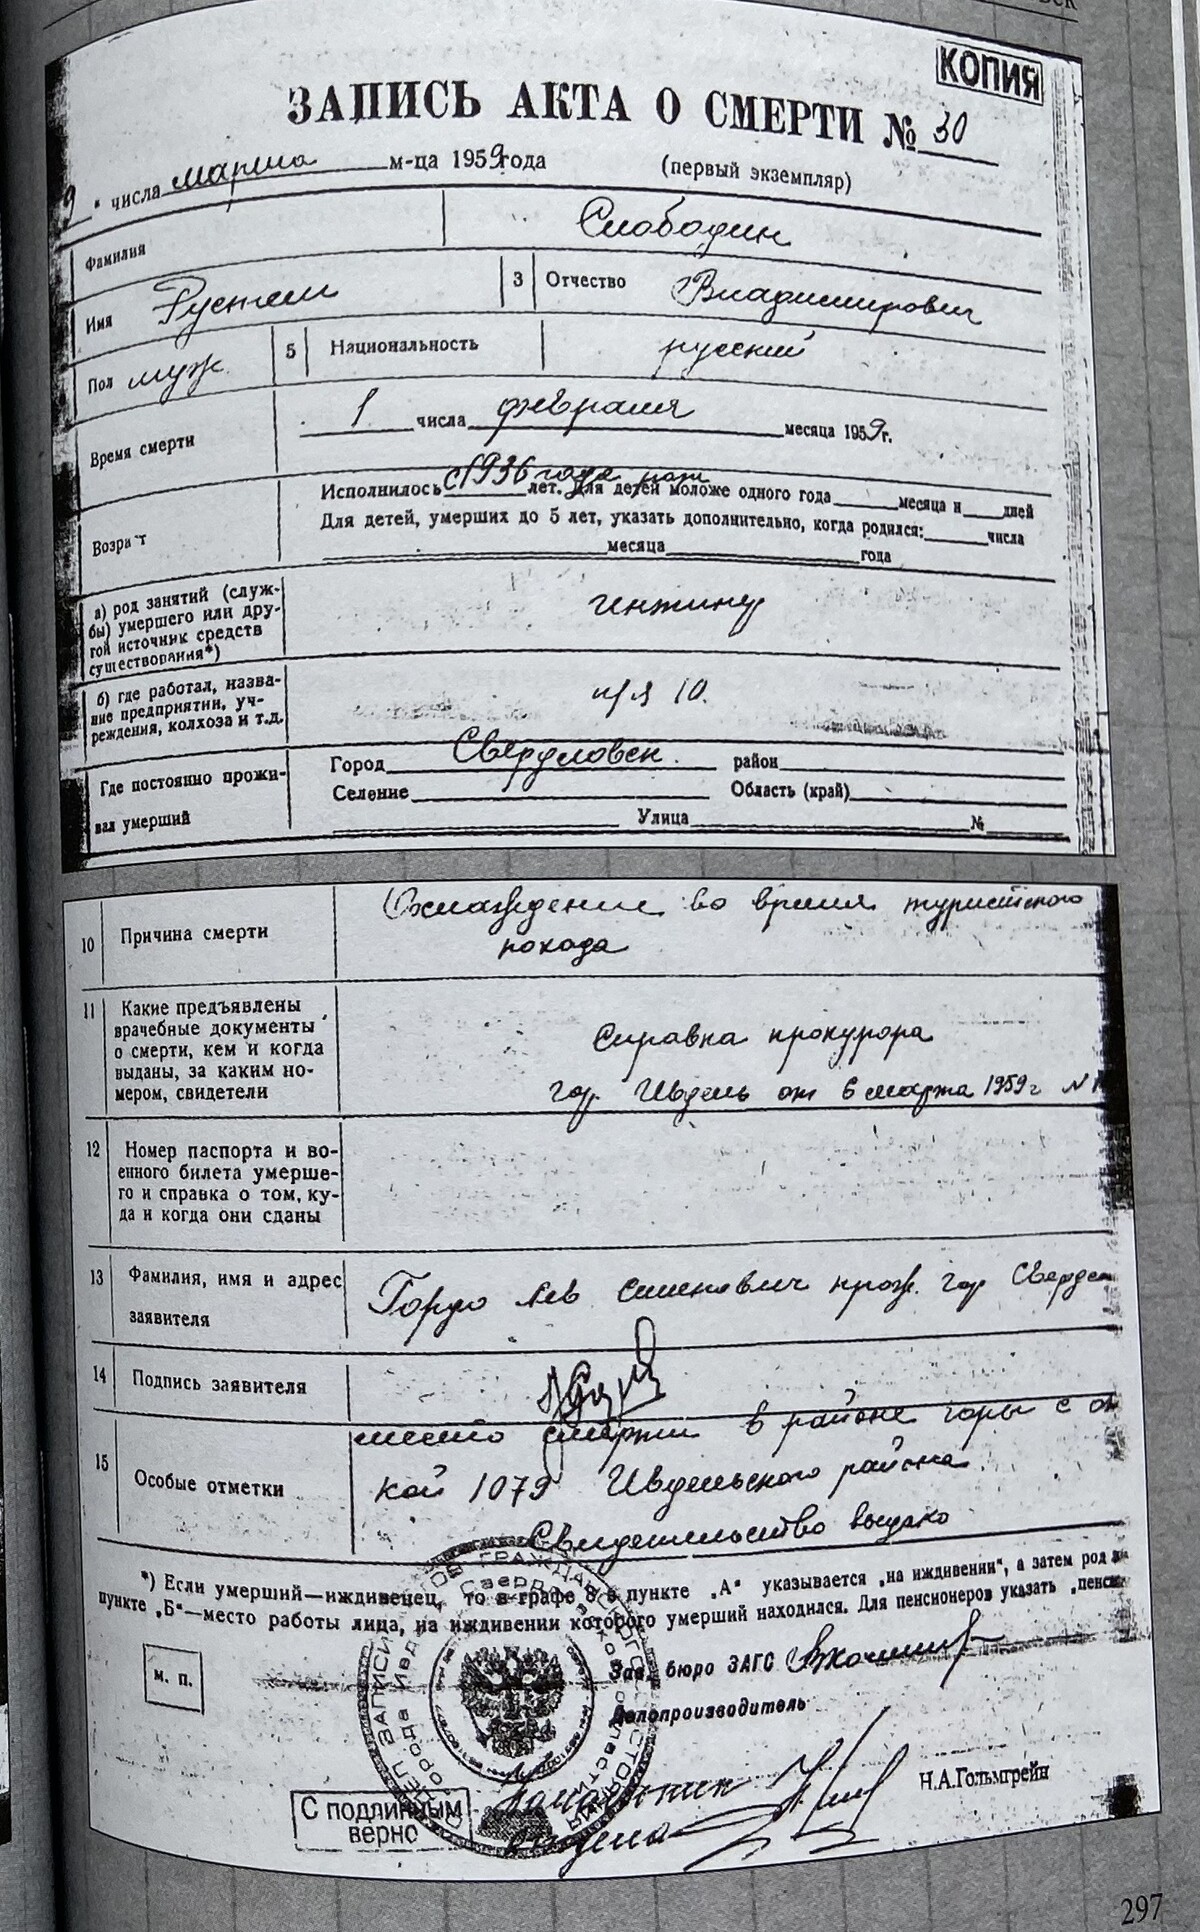 КОПИЯ
ЗАПИСЬ АКТА О СМЕРТИ № 30
9 " числа марта м-ца 1959 года (первый экземпляр)
Фамилия Слободин
Имя Рустем 3 Отчество Владимирович
Пол муж. 5 Национальность русский
Время смерти 1 числа февраля месяца 1959 г.
Возраст Исполнилось с 1936 года рожд лет. Для детей моложе одного года месяца и дней
Для детей, умерших до 5 лет, указать дополнительно, когда родился: числа
месяца года
а) род занятий (служ-
бы) умершего или дру-
гой источник средств
существования*) инженер
б) где работал, назва-
ние предприятии, уч-
реждения, колхоза и т.д. п/я 10.
Где постоянно прожи-
вал умерший
Город Свердловск. район
Селение Область (край)
Улица №
10 Причина смерти Охлаждение во время туристского
похода
11 Какие предъявлены
врачебные документы
о смерти, кем и когда
выданы, за каким но-
мером, свидетели
Справка прокурора
гор. Ивдель от 6 марта 1959 г N
12 Номер паспорта и во-
енного билета умерше-
го и справка о том, ку-
да и когда они сданы
13 Фамилия, имя и адрес
заявителя
Гордо Лев Семенович прож. гор Свердл
14 Подпись заявителя
15 Особые отметки место смерти в районе горы с от
кой 1079 Ивдельского района.
Свидетельство выдано
*) Если умерший—иждивенец, то в графе 8 в пункте „А“ указывается „на иждивении“, а затем род
пункте „Б“—место работы лица, на иждивении которого умерший находился. Для пенсионеров указать „пенси
м. п.
Зав. бюро ЗАГС
Делопроизводитель
Н.А.Гольмгрейн
С подлинным
верно
начальник
отдела
297